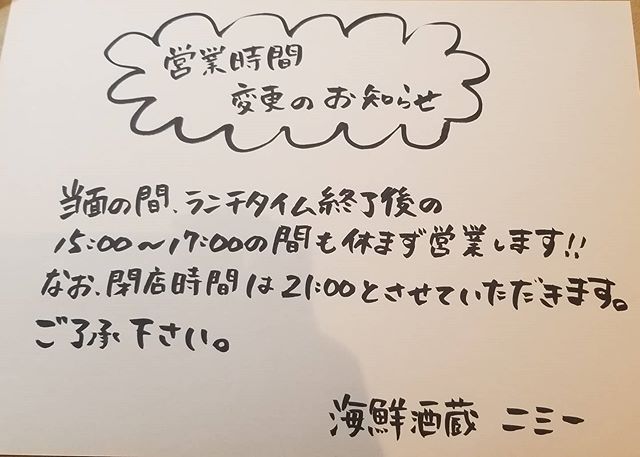 営業時間
変更のお知らせ
当面の間、ランチタイム終了後の
15:00〜17:00の間も休まず営業します!!
なお、閉店時間は21:00とさせていただきます。
ご了承下さい。
海鮮酒蔵 ニミー